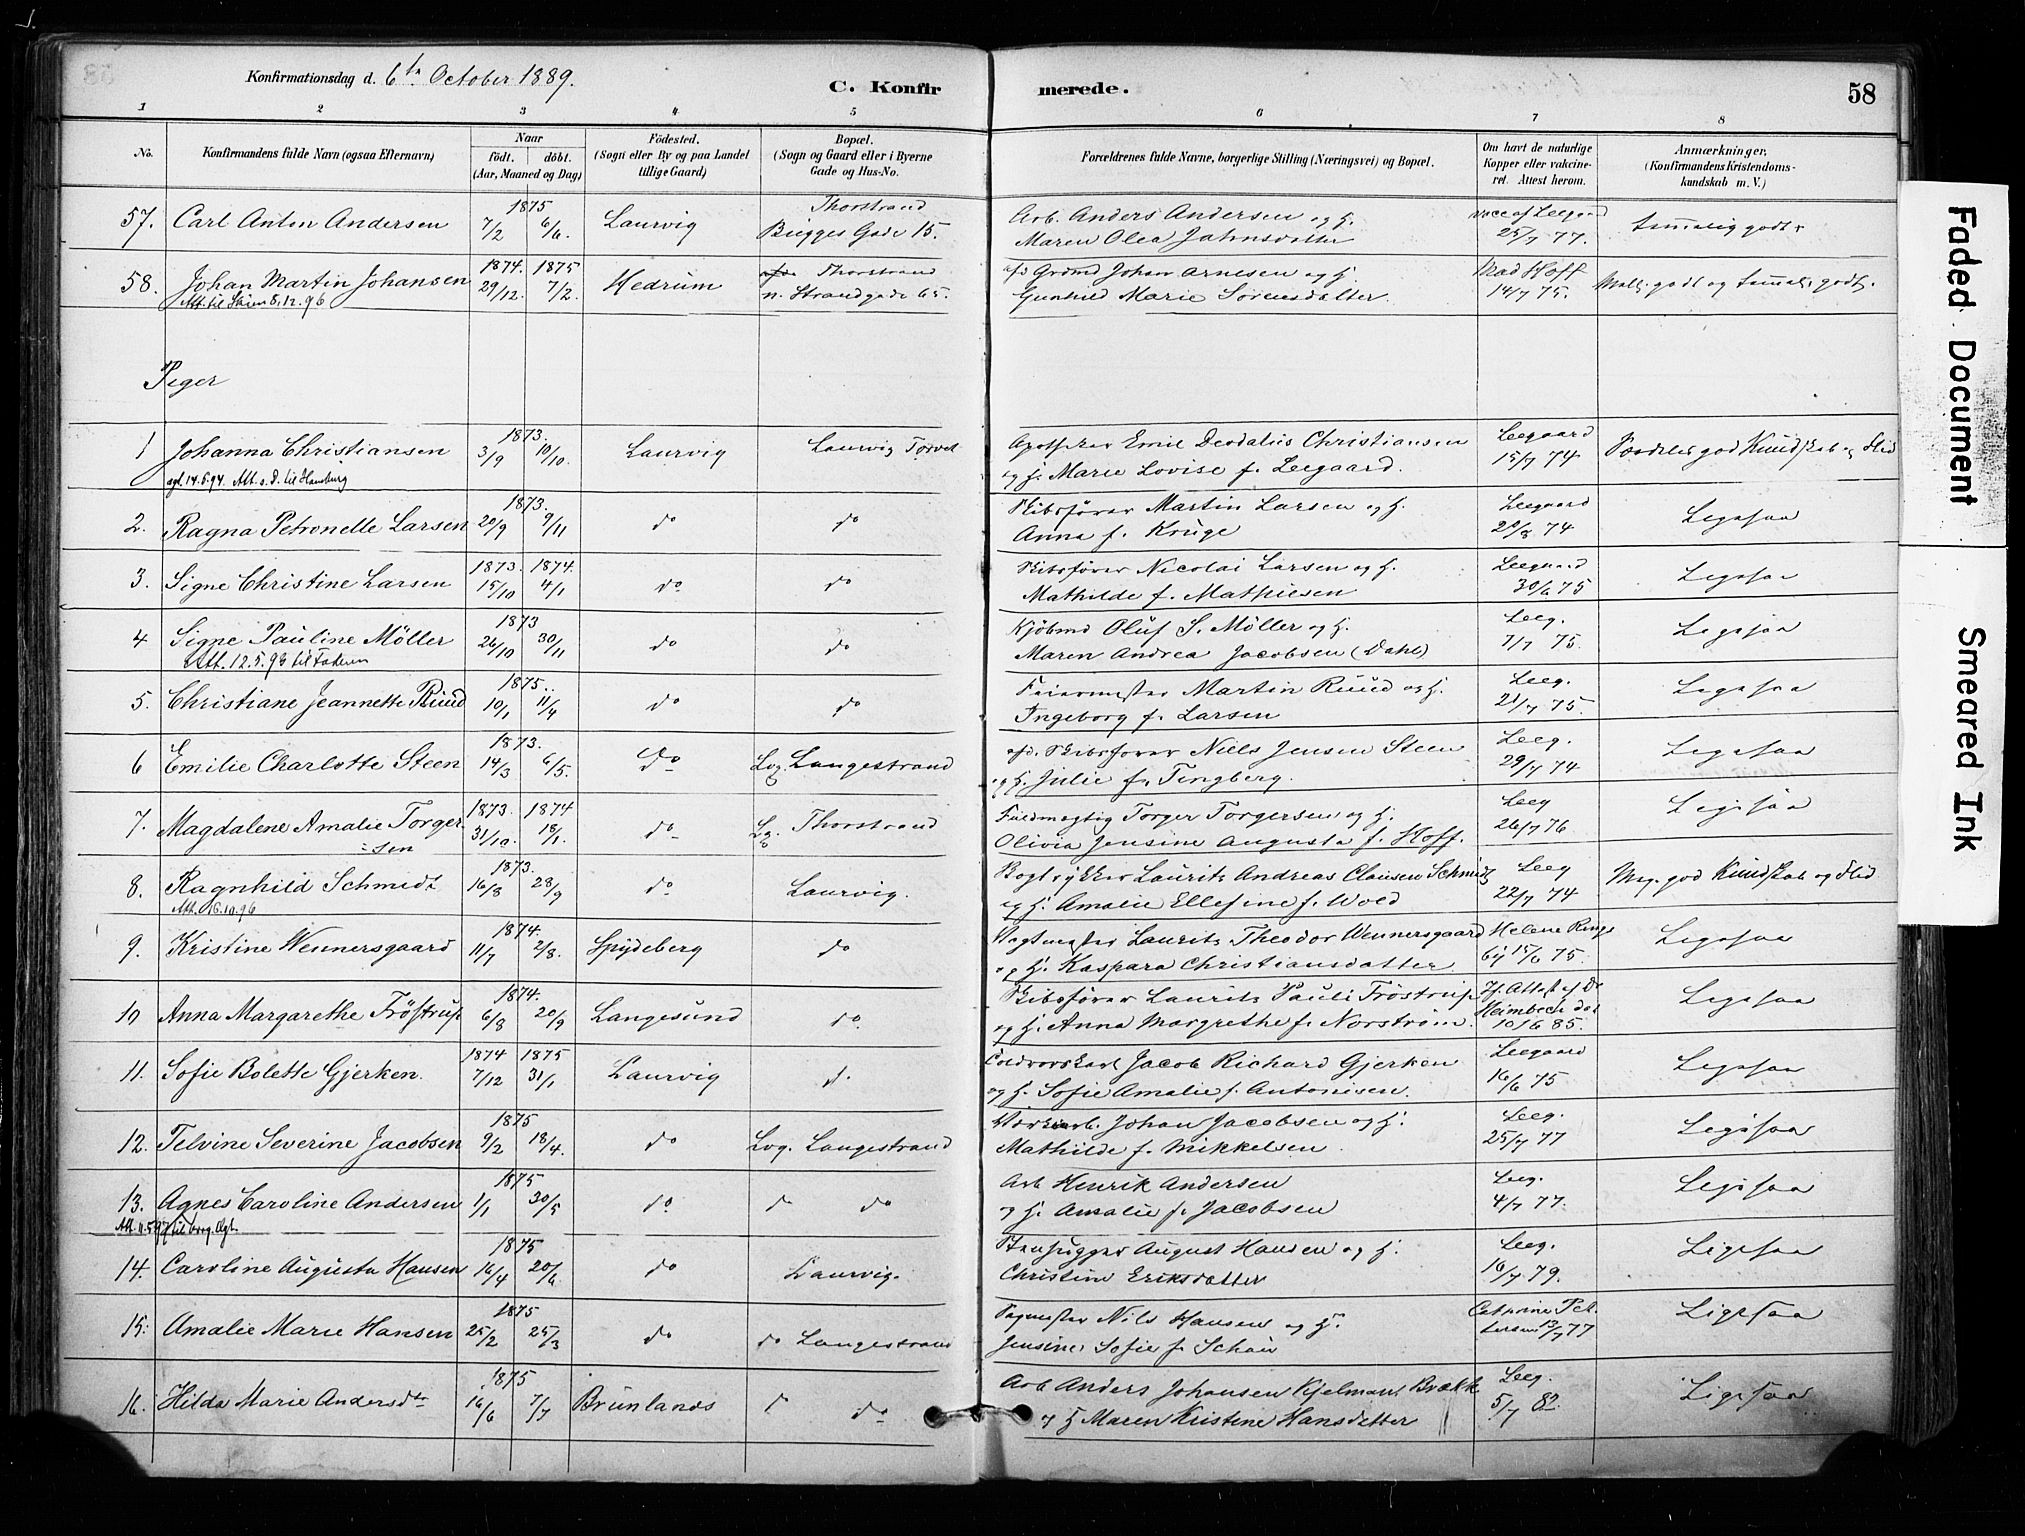 Konfirmationsdag d. 6te October 1889.
C. Konfirmerede.
58
1 2 3 4 5 6 7 8
No.
Konfirmandens fulde Navn (ogsaa Efternavn)
Naar
födt. döbt.
(Aar, Maaned og Dag)
Födested.
(Sogn eller By og paa Landet
tillige Gaard)
Bopæl.
(Sogn og Gaard eller i Byerne
Gade og Hus-No.
Forældrenes fulde Navne, borgerlige Stilling (Næringsvei) og Bopæl.
Om havt de naturlige
Kopper eller vakcine-
ret. Attest herom.
Anmærkninger,
(Konfirmandens Kristendoms-
kundskab m. V.)
57. Carl Anton Andersen 1875 7/2 6/6. Laurvig Thorstrand Bügges Gade 15. Arb. Anders Andersen og H. Maren Olea Jahnsdatter vacc af Leegaard 25/7 77.
58. Johan Martin Johansen 1874. 29/12. 1875 7/2. Hedrum Thorstrand n. Strandgade 65. Johan Arnesen og H. Gunhild Marie Sörensdatter. Mad Hoff 14/7 75.
Att. til Skien 8.12.96
Piger
1 Johanna Christiansen 1873. 3/9 10/10. Laurvig Laurvig Torvet Apotheker Emil Deodatus Christiansen og H. Marie Lovise f. Leegaard. Leegaard 15/7 74
2. Ragna Petronelle Larsen 1873. 20/9 9/11 do do Skibsförer Martin Larsen og H. Anna f. Krüge Leegaard 20/8 74 Ligesaa
3. Signe Christine Larsen 1873. 15/10 1874. 4/1 do do Skibsförer Nicolai Larsen og H. Mathilde f. Mathiesen Leegaard 30/6 75 Ligesaa
4 Signe Pauline Möller 1873 26/10 30/11 do do Kjöbmd Oluf S. Möller og H. Maren Andrea Jacobsen (Dahl) Leeg. 7/7 75. Ligesaa
5. Christiane Jeannette Rüud 1875. 10/1 11/4 do do Feiermester Martin Rüud og H. Ingeborg f. Larsen Leeg. 21/7 75. Ligesaa
6 Emilie Charlotte Steen 1873. 14/3 6/5. do Lvg. Langestrand afd. Skibsförer Niels Jensen Steen og H. Julie f. Tingberg. Leeg. 29/7 74 Ligesaa
7. Magdalene Amalie Torger-
sen 1873. 31/10. 1874 18/1. do Lvg. Thorstrand Fuldmægtig Torger Torgersen og H. Olivia Jensine Augusta f. Hoff. Leeg 26/7 76. Ligesaa
8. Ragnhild Schmidt 1873. 16/8 28/9 do Laurvig. Bogtrykker Laurits Andreas Clausen Schmidt og H. Amalie Ellefine f. Wold Leeg 22/7 74 Meg. god Kundskab og Flid
Att. 16.10.96
9. Kristine Wennersgaard 1874. 11/7 2/8. Spydeberg do Vagtmester Laurits Theodor Wennersgaard og H. Kaspara Christiansdatter 15/6 75. Ligesaa
10 Anna Margarethe Fröstrup 1874. 6/8 20/9 Langesund do. Skibsförer Laurits Pauli Fröstrup og H. Anna Margrethe f. Norström. 10/6 85. Ligesaa
11. Sofie Bolette Gjerken. 1874 7/12 1875 31/1 Laurvig do Jacob Richard Gjerken og H. Sofie Amalie f. Antonisen. Leegaard 16/6 75 Ligesaa
12. Telvine Severine Jacobsen 1875 9/2 18/4. do Lvg. Langestrand Johan Jacobsen og H. Mathilde f. Mikkelsen Leeg. 25/7 77 Ligesaa
13. Agnes Caroline Andersen 1875 1/1 30/5 do do do Arb Henrik Andersen og H. Amalie f. Jacobsen Leeg. 4/7 77. Ligesaa
14. Caroline Augusta Hansen 1875 16/4 20/6. do Laurvig. Stenhugger August Hansen og H. Christine Eriksdatter Leeg. 16/7 79. Ligesaa
15. Amalie Marie Hansen 1875 25/2 25/3 do do Langestrand Nils Hansen og H. Jensine Sofie f. Schau 13/7 77 Ligesaa
16. Hilda Marie Andersdtr 1875 16/6 7/7 Brunlanes do do Arb Anders Johansen Kjelmans Bræk og H Maren Kristine Hansdatter Leeg. 5/7 82 Ligesaa
Faded Document
Smeared Ink